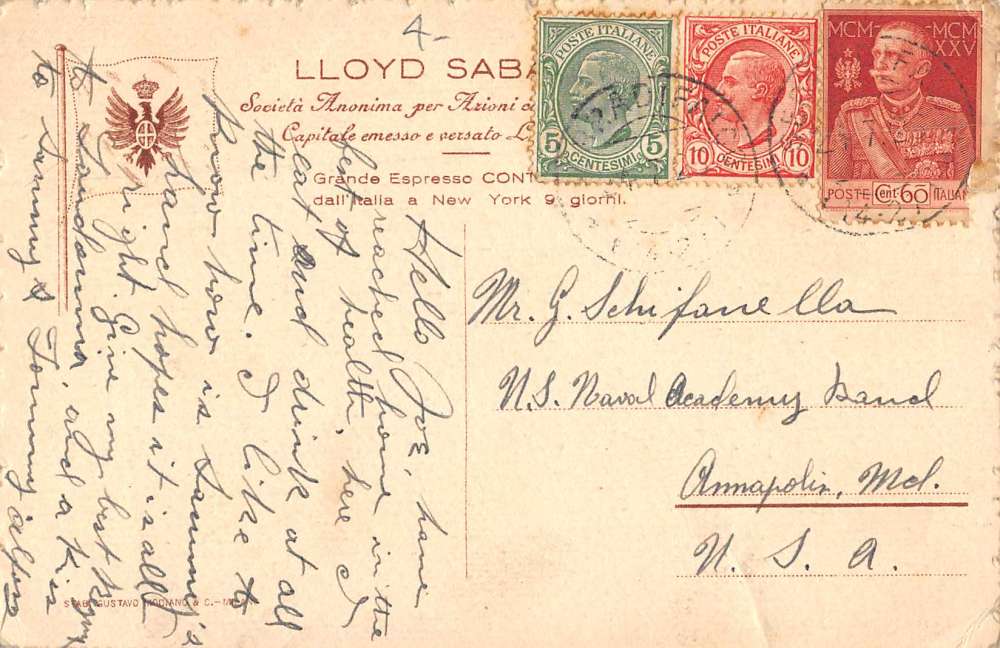 4-
LLOYD SABA
Società Anonima per Azioni
Capitale emesso e versato L
Grande Espresso CONT
dall'Italia a New York 9 giorni.
POSTE ITALIANE
5 CENTESIMI 5
POSTE ITALIANE
10 CENTESIMI 10
MCM MCM
XXV
POSTE Cent. 60 ITALIAN
Hello Joe, have
reached home in the
best of health, here I
eat and drink at all
the time. I like to
know how is Sammy's
hand hopes it is all
right Give my best
to and a Kiss
to Sammy & Tommy
Mr. G. Schifanella
U.S. Naval Academy Band
Annapolis, Md.
U. S. A.
STAB. GUSTAVO MODIANO & C.-